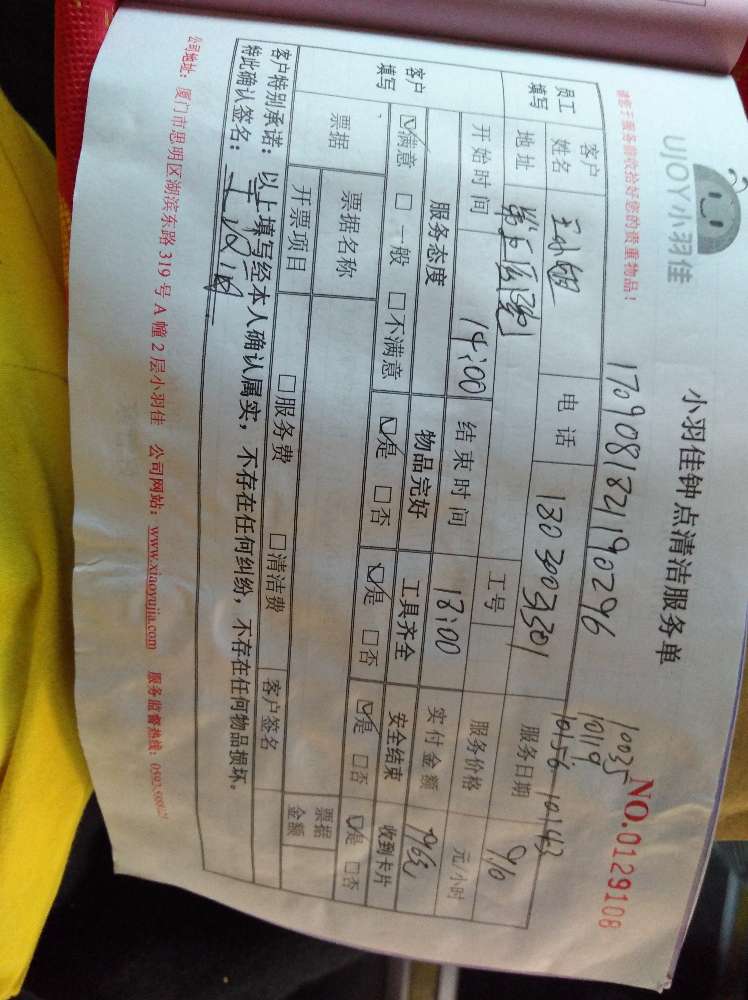 UJOY小羽佳
小羽佳钟点清洁服务单
NO.0129108
请您于服务前收拾好您的贵重物品！
17090818241190296
10035
10119
10156 10143
员工填写
客户姓名
王小姐
电话
服务日期
9.10
地址
第五医院
工号
服务价格
元/小时
开始时间
14:00
结束时间
18:00
实付金额
客户填写
服务态度
物品完好
工具齐全
安全结束
收到卡片
☑满意 □一般 □不满意
☑是 □否
☑是 □否
☑是 □否
☑是 □否
票据
票据名称
票据金额
开票项目
□服务费 □清洁费
客户签名
客户特别承诺：以上填写经本人确认属实，不存在任何纠纷，不存在任何物品损坏。
特此确认签名：
公司地址：厦门市思明区湖滨东路 319 号 A 幢 2 层小羽佳 公司网站：www.xiaoyujia.com 服务监督热线：